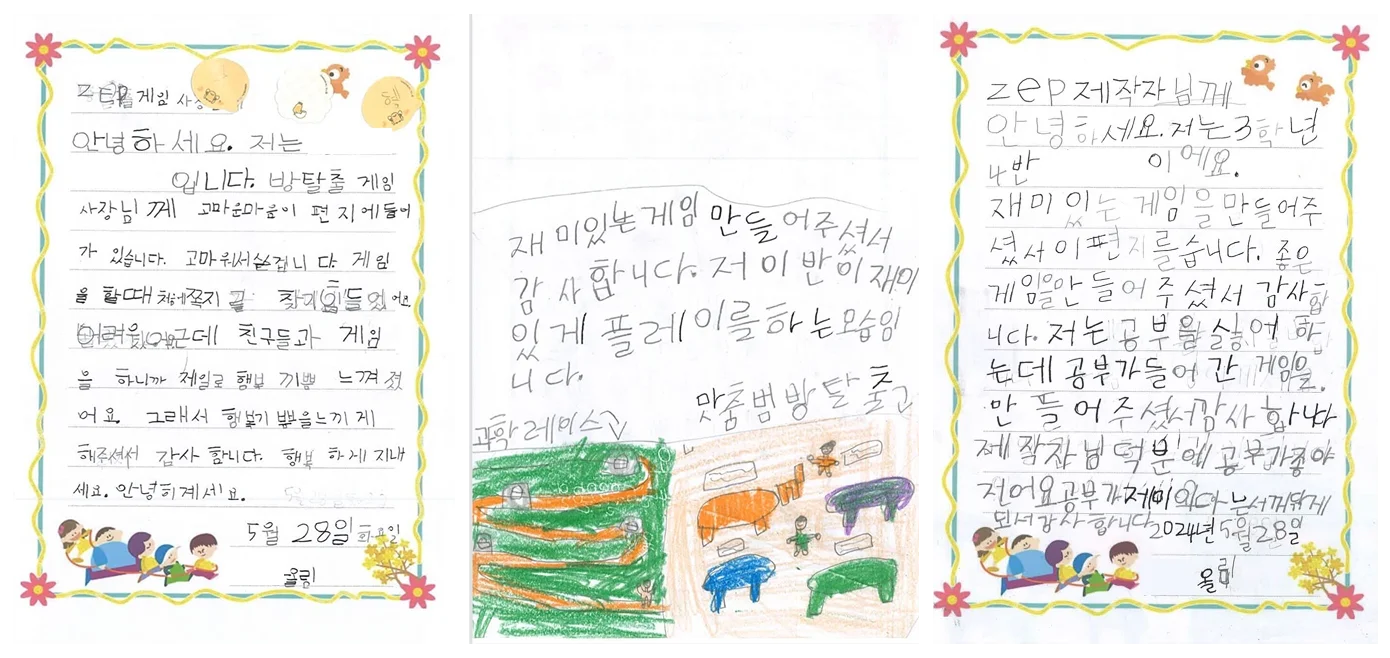 ZEP 게임
안녕하세요. 저는
입니다. 방탈출 게임
사장님께 고마운마음이 편지에들어
가 있습니다. 고마워서쓴겁니다. 게임
을 할때 쪽지 찾기 힘들었어요
어려웠어요근데 친구들과 게임
을 하니까 제일로 행보 끼쁘 느껴졌
어요. 그래서 행복기쁨을느끼게
해주셔서 감사합니다. 행복하게지내
세요. 안녕히계세요.
5월 28일 화요일
올림
재미있는게임 만들어주셨서
감사합니다. 저이반이재미
있게 플레이를하는모습임
니다.
과학레이스
맞춤범방탈출
zep제작자님께
안녕하세요. 저는3학년
4반 이에요.
재미있는 게임을만들어주
셨서이편지를습니다. 좋은
게임을만들어주셨서 감사합
니다. 저는공부을싫어하
는데공부가들어간 게임을
만들어주셨서감사합니다
제작자님덕분에공부가좋아
저어요공부가재미
되서감사합니다2024년5월28일
올림